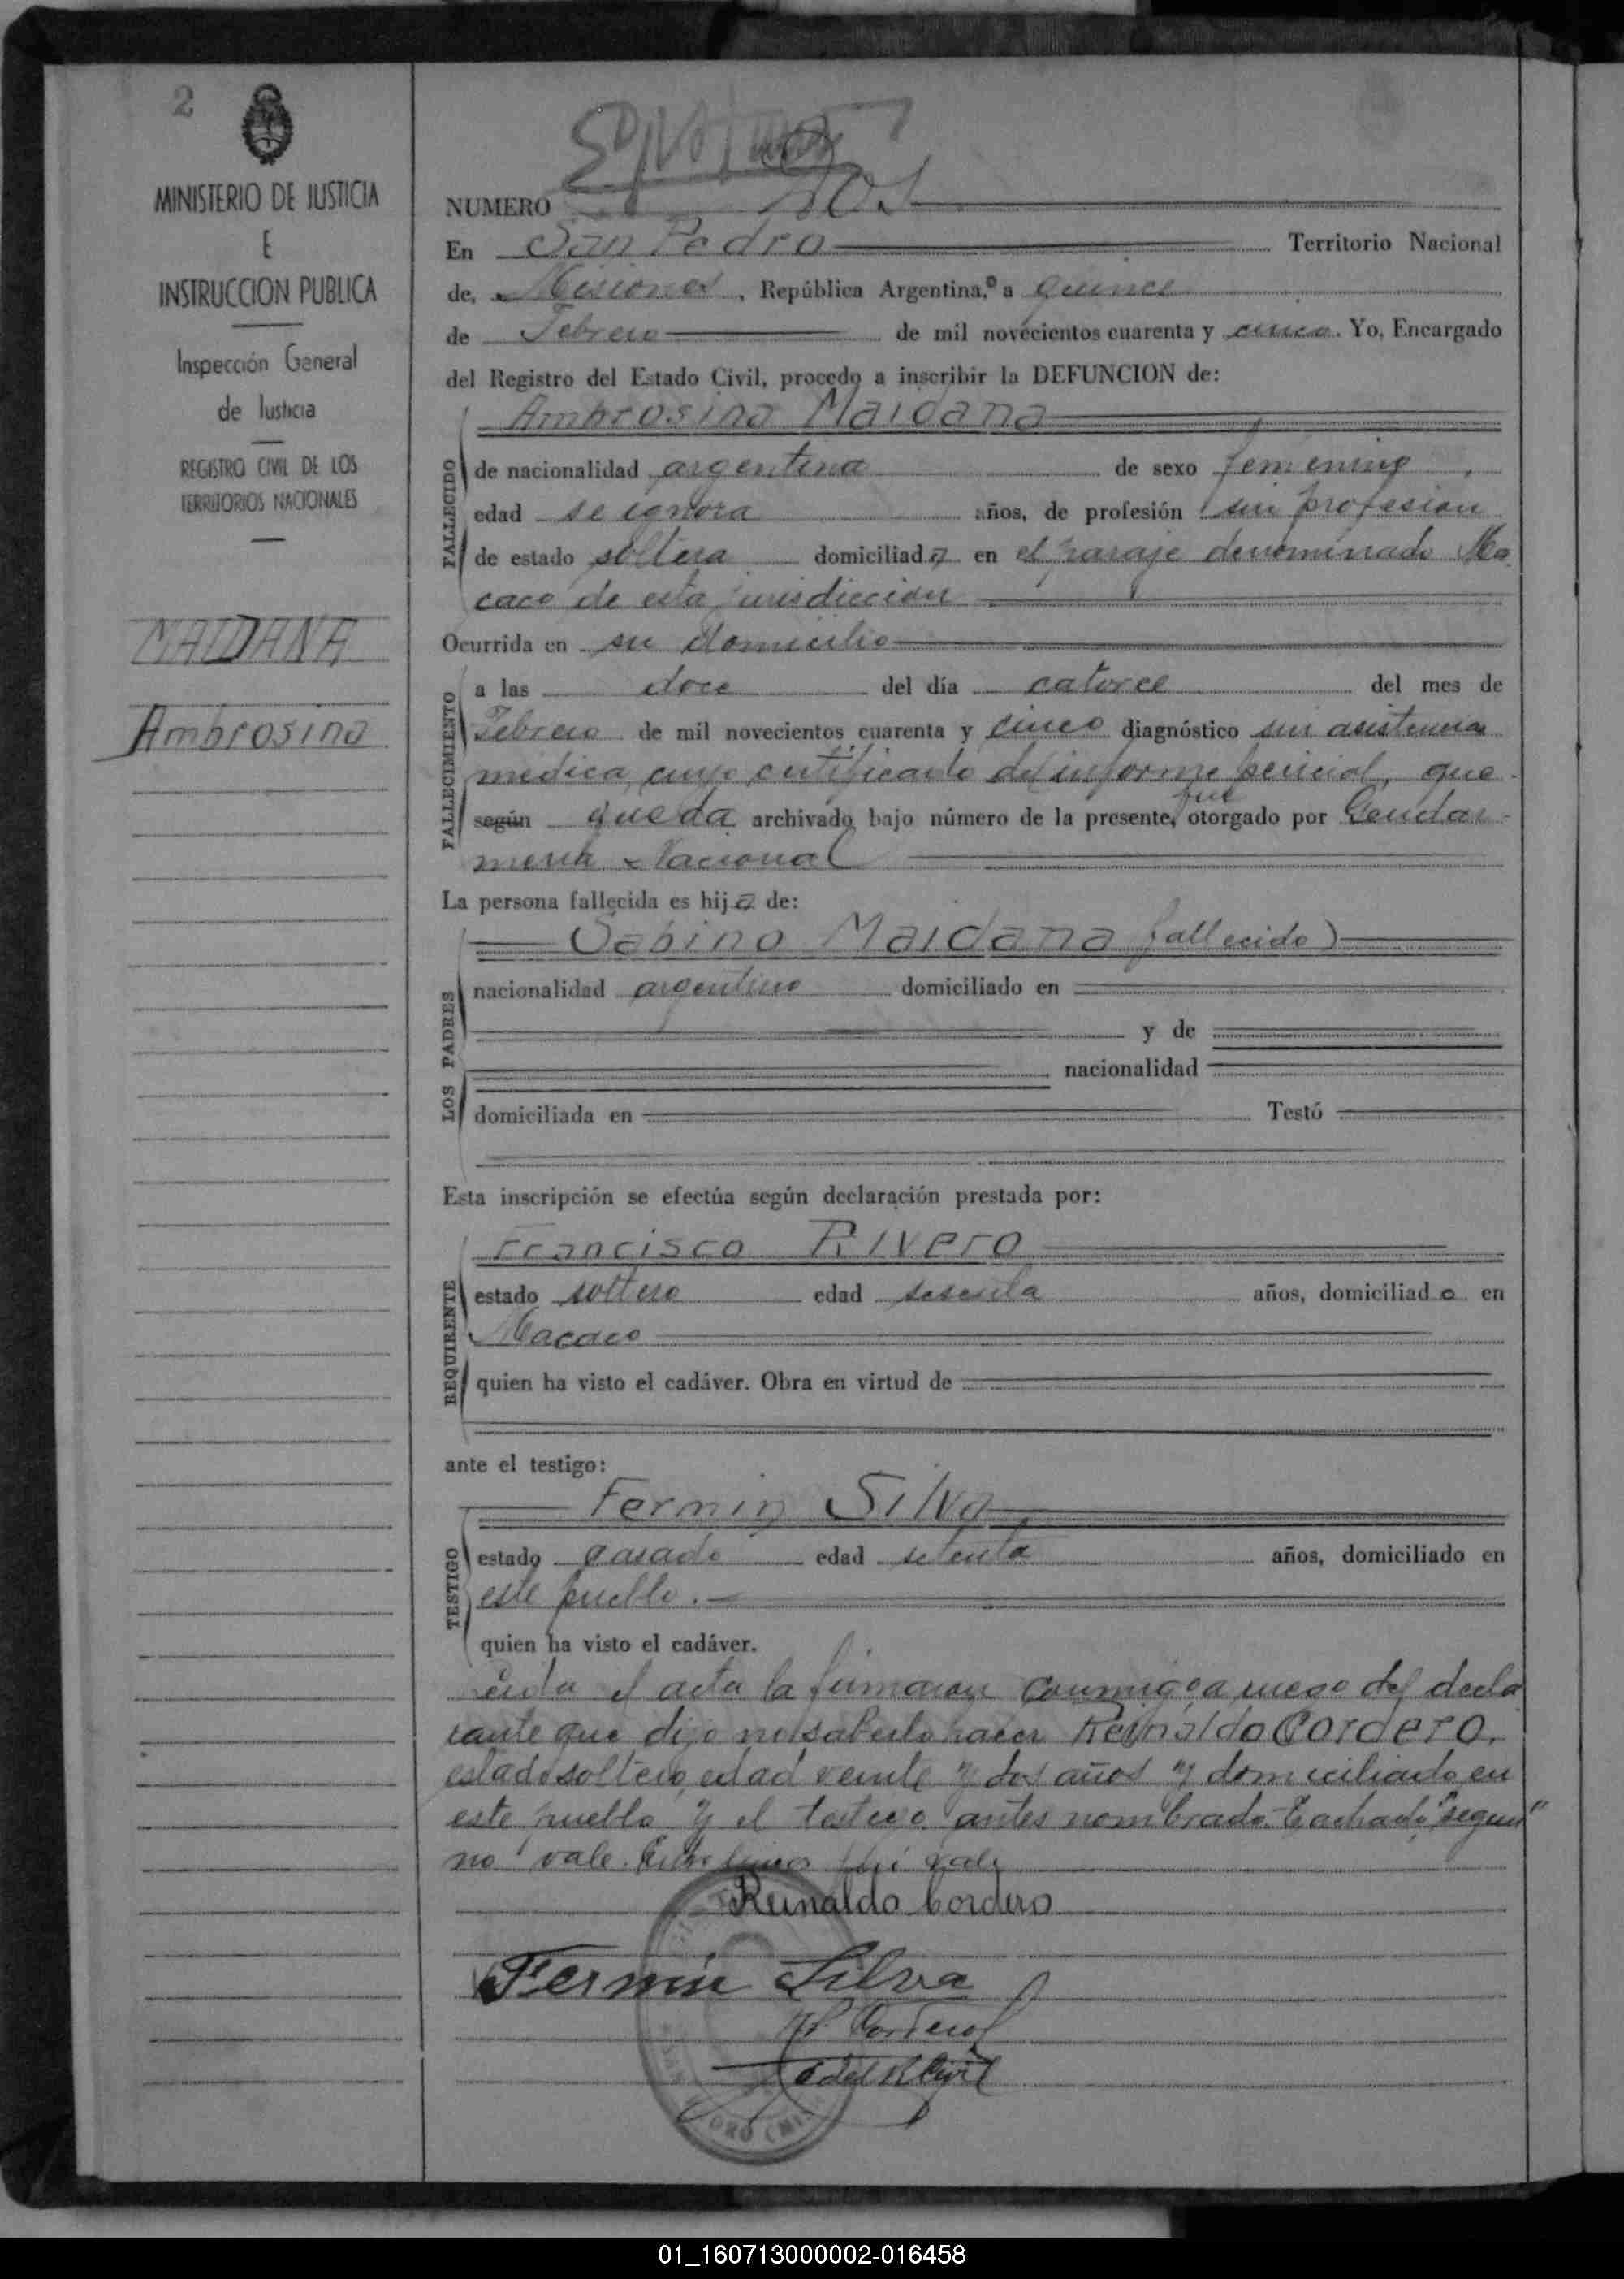 2
MINISTERIO DE JUSTICIA
E
INSTRUCCION PUBLICA
Inspección General
de Justicia
REGISTRO CIVIL DE LOS
TERRITORIOS NACIONALES
MAIDANA
Ambrosina
NUMERO DOS
En San Pedro Territorio Nacional
de, Misiones, República Argentina, a quince
de Febrero de mil novecientos cuarenta y cinco. Yo, Encargado
del Registro del Estado Civil, procedo a inscribir la DEFUNCION de:
Ambrosina Maidana
FALLECIDO
de nacionalidad argentina de sexo femenino,
edad se ignora años, de profesión sin profesion
de estado soltera domiciliada en el paraje denominado Ma
caco de esta jurisdiccion
Ocurrida en su domicilio
FALLECIMIENTO
a las doce del día catorce del mes de
Febrero de mil novecientos cuarenta y cinco diagnóstico sin asistencia
medica, cuyo certificado del informe pericial, que
fué
según queda archivado bajo número de la presente, otorgado por Gendar-
meria Nacional
La persona fallecida es hija de:
Sabino Maidana fallecido)
LOS PADRES
nacionalidad argentino domiciliado en
y de
nacionalidad
domiciliada en Testó
Esta inscripción se efectúa según declaración prestada por:
Francisco Rivero
REQUIRENTE
estado soltero edad sesenta años, domiciliado en
Macaco
quien ha visto el cadáver. Obra en virtud de
ante el testigo:
Fermin Silva
TESTIGO
estado casado edad setenta años, domiciliado en
este pueblo.
quien ha visto el cadáver.
Leida el acta la firmaron conmigo a ruego del decla
rante que dijo no saberlo hacer Reinaldo Cordero,
estado soltero, edad veinte y dos años y domiciliado en
este pueblo y el testigo antes nombrado. Tachado "segun"
no vale. Entre lineas fué vale
Reinaldo Cordero
Fermin Silva
Cordero
E del R Civil
01_160713000002-016458